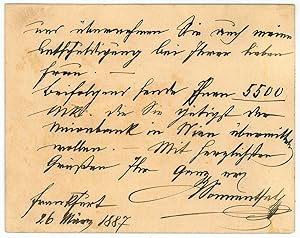 und übernehmen Sie auch meine
Entschuldigung bei Ihrer lieben
Frau. —
Beifolgend sende Ihnen 5500
Mk. die Sie gütigst der
Unionbank in Wien übermitteln
wollen. — Mit herzlichsten
Grüßen Ihr Ganz erg
Sonnenthal
Frankfurt
26 März 1887